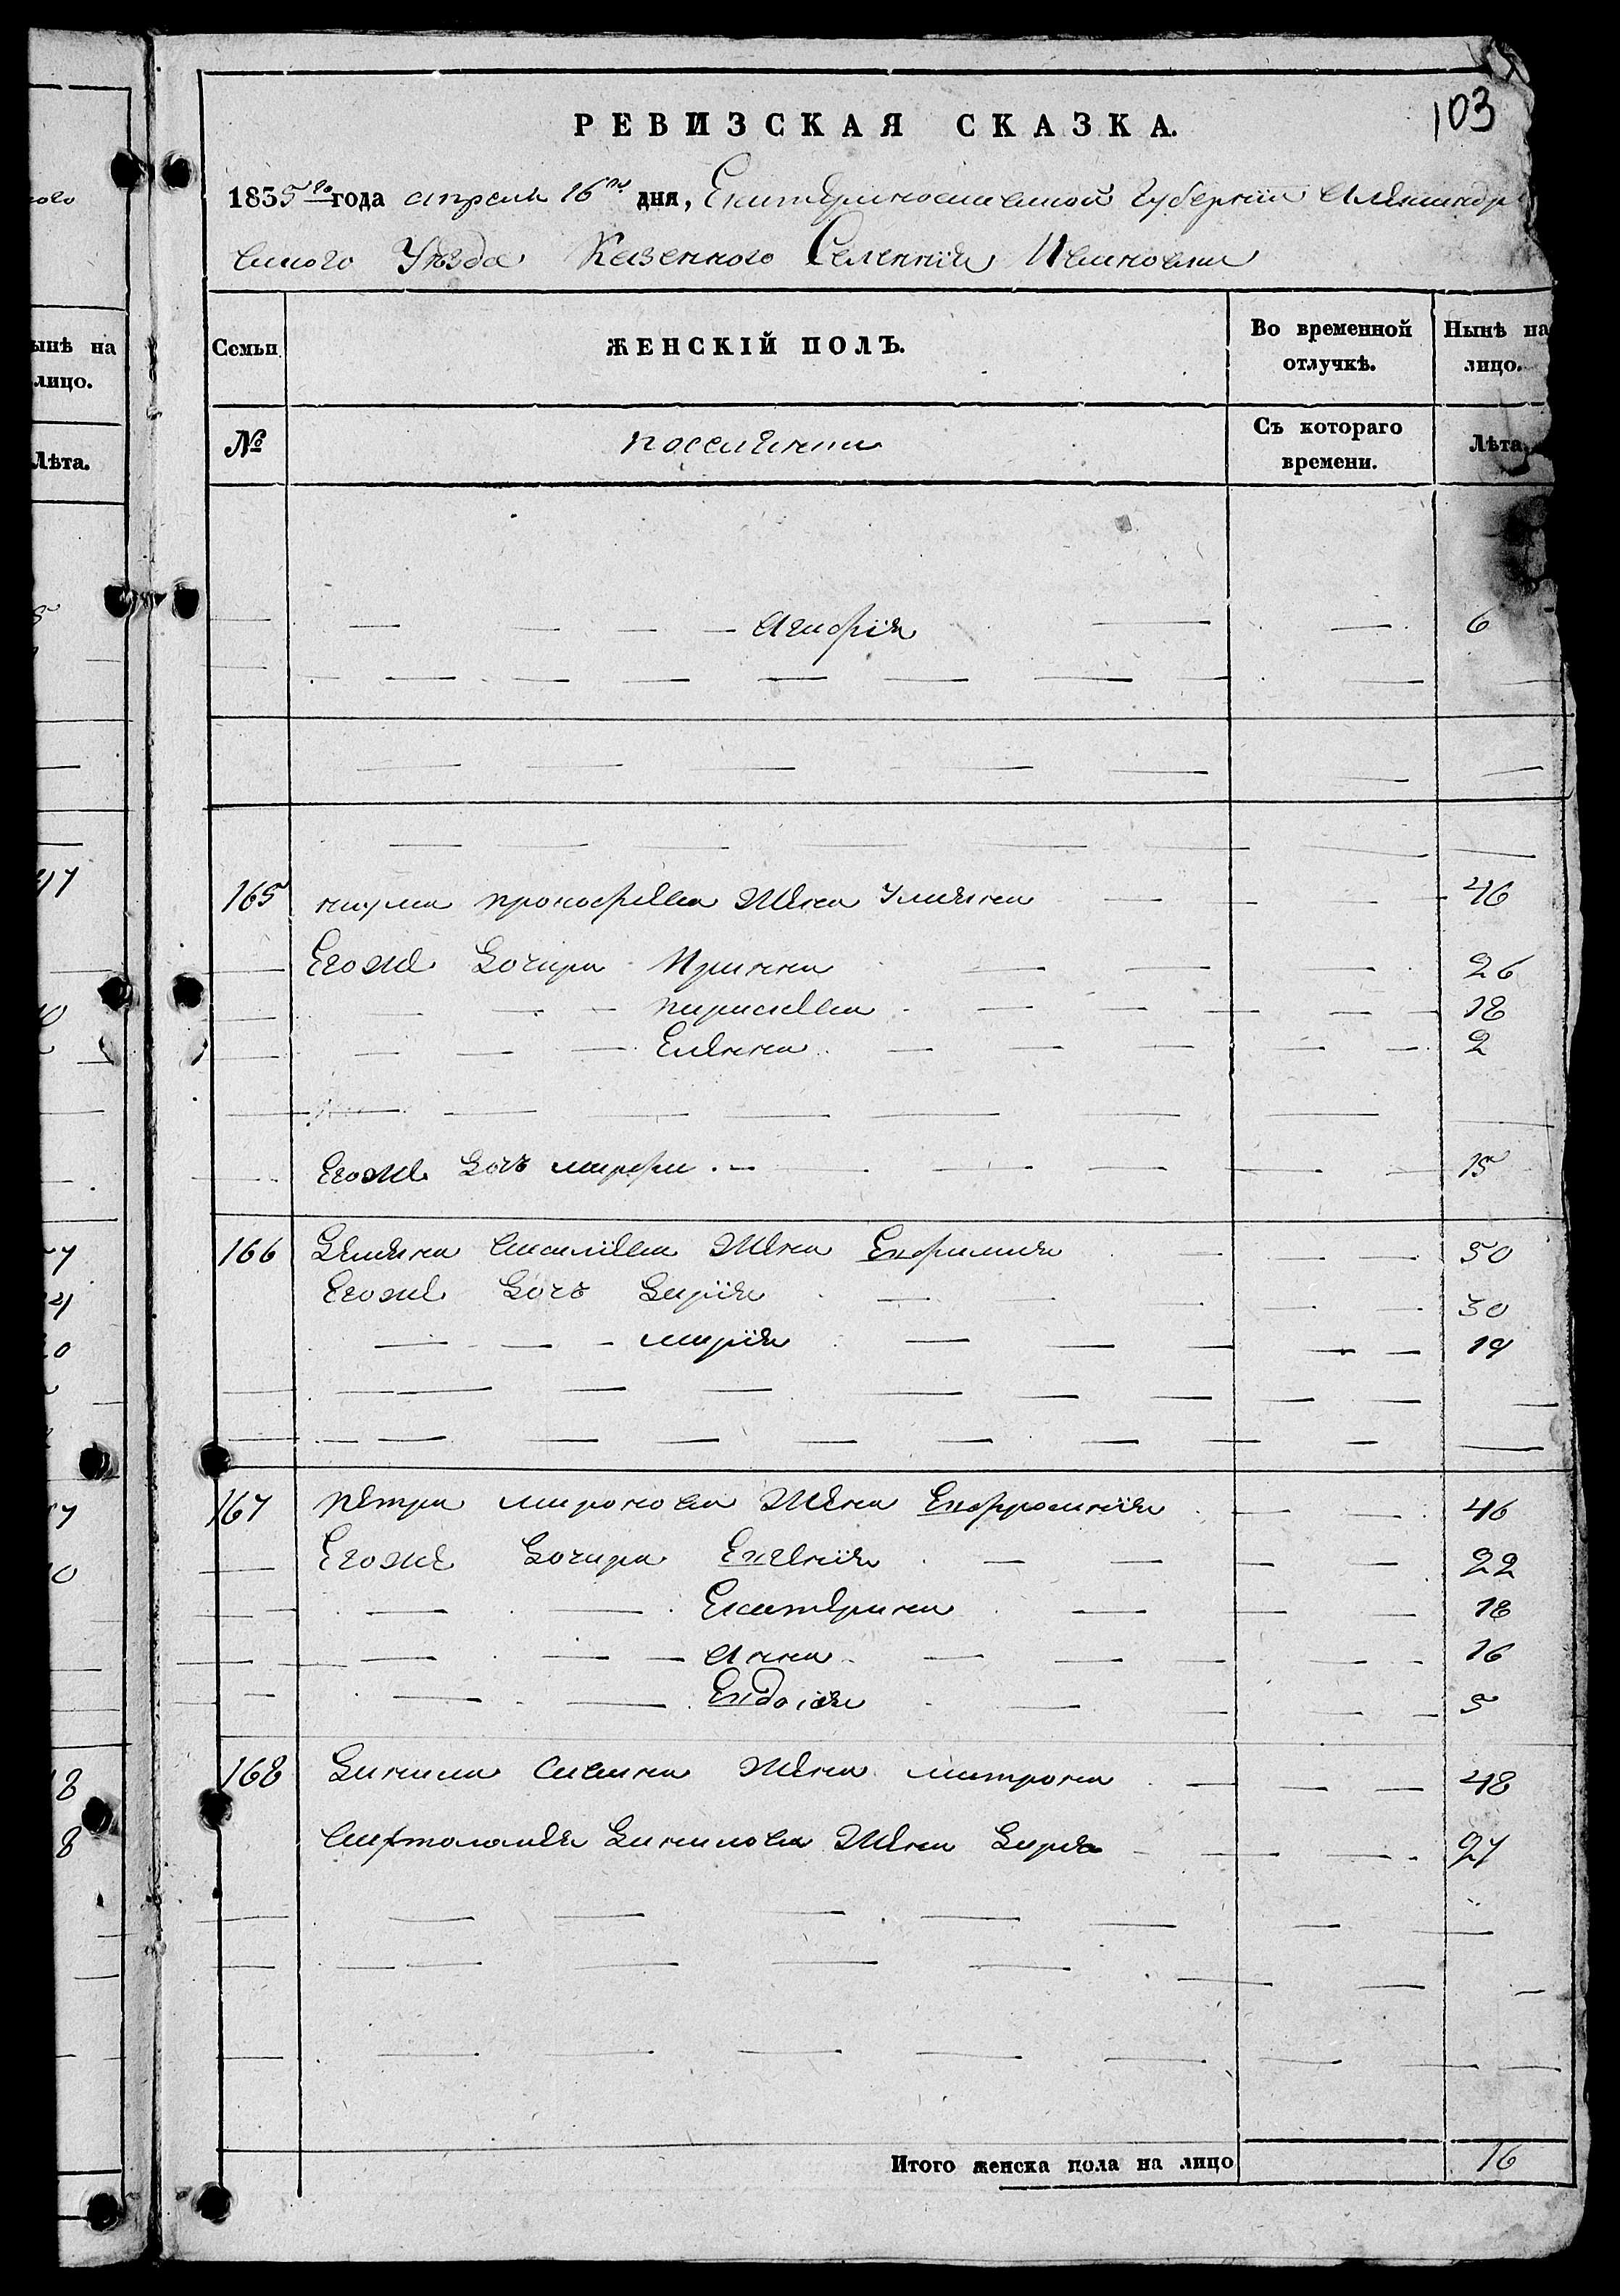 103
РЕВИЗСКАЯ СКАЗКА.
1835 го года апреля 16 го дня, Екатеринославской Губернїи Александр
вского Уѣзда Казенного Селенїя Ивановки
Семьи
ЖЕНСКІЙ ПОЛЪ.
Во временной отлучкѣ.
Нынѣ на лицо.
№
поселянки
Съ котораго времени.
Лѣта
Агафїя 6
165 наума прокофьева Жена Ульяна 46
Егоже Дочери Иринна 26
параскева 18
Еленна 2
Егоже Дочь марфа 15
166 Демяна василїева Жена Ефимия 50
Егоже Дочь Дарїя 30
марїя 19
167 петра миронова Жена Евфросинїя 46
Егоже Дочери Евгенїя 22
Екатерина 18
Анна 16
Евдокия 5
168 Данила Савина Жена матрона 48
вартоломея Данилова Жена Дарья 27
Итого женска пола на лицо 16
ынѣ на
лицо.
Лѣта.